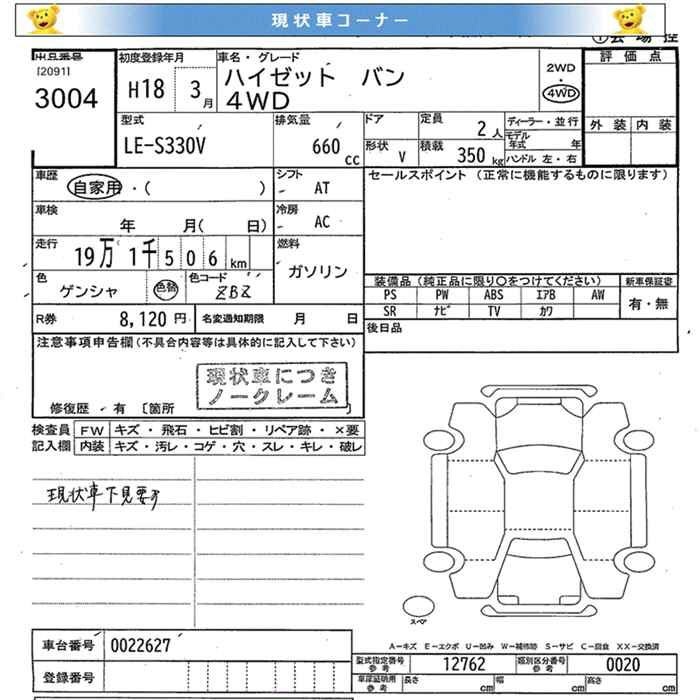 現状車コーナー
出品番号
[2091]
3004
初度登録年月
H18 3月
車名・グレード
ハイゼット バン
4WD
2WD
・
4WD
評価点
外装 内装
型式
LE-S330V
排気量
660 cc
ドア
定員
2人
ディーラー・並行
モデル
年式 年
形状
V
積載
350 kg
ハンドル 左・右
車歴
自家用・( )
シフト
AT
セールスポイント (正常に機能するものに限ります)
車検
年 月( 日)
冷房
AC
走行
19万 1千 5 0 6 km
燃料
ガソリン
色
ゲンシャ
色替
色コード
装備品 (純正品に限り○をつけてください)
新車保証書
PS PW ABS エアB AW
有・無
SR ナビ TV カワ
R券
8,120 円
名変通知期限 月 日
後日品
注意事項申告欄 (不具合内容等は具体的に記入して下さい)
現状車につき
ノークレーム
修復歴・有 [箇所
検査員
記入欄
FW キズ・飛石・ヒビ割・リペア跡・×要
内装 キズ・汚レ・コゲ・穴・スレ・キレ・破レ
現状車下見要す
スペア
A－キズ E－エクボ U－凹み W－補修跡 S－サビ C－腐食 XX－交換済
車台番号
0022627
型式指定番号
参考
12762
類別区分番号
参考
0020
登録番号
車庫証明用
参考
長さ cm
幅 cm
高さ cm